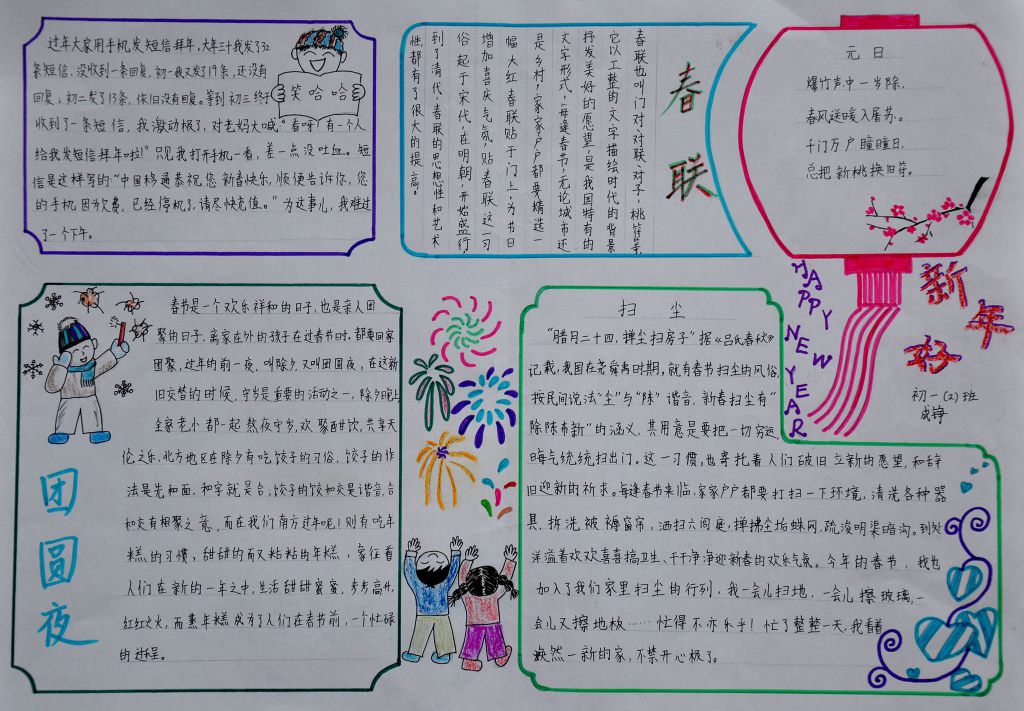 过年大家用手机发短信拜年,大年三十我发了32
条短信,没收到一条回复,初一我又发了19条,还没有
回复;初二发了13条,依旧没有回复。等到初三终于
收到了一条短信,我激动极了,对老妈大喊:“看呀!有一个人
给我发短信拜年啦!”只见我打开手机一看,差一点没吐血。短
信是这样写的“中国移通恭祝您新春快乐,顺便告诉你,您
的手机因为欠费,已经停机了,请尽快充值。”为这事儿,我难过
了一个下午。
笑哈哈
春联
春联也叫门对、对联、对子,桃符等,
它以工整的文字描绘时代的背景
抒发美好的愿望,是我国特有的
文字形式,每逢春节,无论城市还
是乡村,家家户户都要精选一
幅大红春联贴于门上,为节日
增加喜庆气氛,贴春联这一习
俗起于宋代,在明朝,开始盛行,
到了清代,春联的思想性和艺术
性都有了很大的提高。
元日
爆竹声中一岁除,
春风送暖入屠苏。
千门万户瞳瞳日,
总把新桃换旧符。
HAPPY NEW YEAR
新年好
初一(2)班
成铮
团圆夜
春节是一个欢乐祥和的日子,也是亲人团
聚的日子,离家在外的孩子在过春节时,都要回家
团聚,过年的前一夜,叫除夕又叫团圆夜,在这新
旧交替的时候,守岁是重要的活动之一,除夕晚上
全家老小都一起熬夜守岁,欢聚酣饮,共享天
伦之乐,北方地区在除夕有吃饺子的习俗,饺子的作
法是先和面,和字就是合;饺子的饺和交是谐音,合
和交有相聚之意,而在我们南方过年呢!则有吃年
糕的习惯,甜甜的而又粘粘的年糕,象征着
人们在新的一年之中,生活甜甜蜜蜜,步步高升,
红红火火,而蒸年糕成为了人们在春节前,一个忙碌
的过程。
扫尘
“腊月二十四,掸尘扫房子”据《吕氏春秋》
记载,我国在尧舜时期,就有春节扫尘的风俗,
按民间说法“尘”与“陈”谐音,新春扫尘有“
除陈布新”的涵义,其用意是要把一切穷运,
晦气统统扫出门。这一习惯,也寄托着人们破旧立新的愿望,和辞
旧迎新的祈求。每逢春节来临,家家户户都要打扫一下环境,清洗各种器
具,拆洗被褥窗帘,洒扫六闾庭,掸拂尘垢蛛网,疏浚明渠暗沟。到处
洋溢着欢欢喜喜搞卫生、干干净净迎新春的欢乐气氛。今年的春节,我也
加入了我们家里扫尘的行列,我一会儿扫地,一会儿擦玻璃,一
会儿又擦地板……忙得不亦乐乎!忙了整整一天,我看着
焕然一新的家,不禁开心极了。